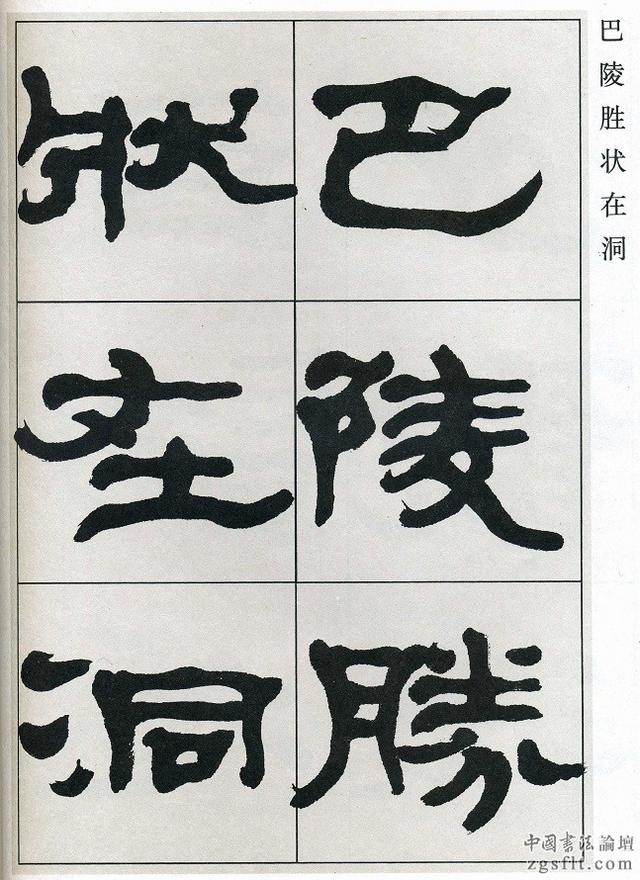 巴陵胜状在洞
巴陵勝
狀在洞
中国书法論壇
zgsflt.com